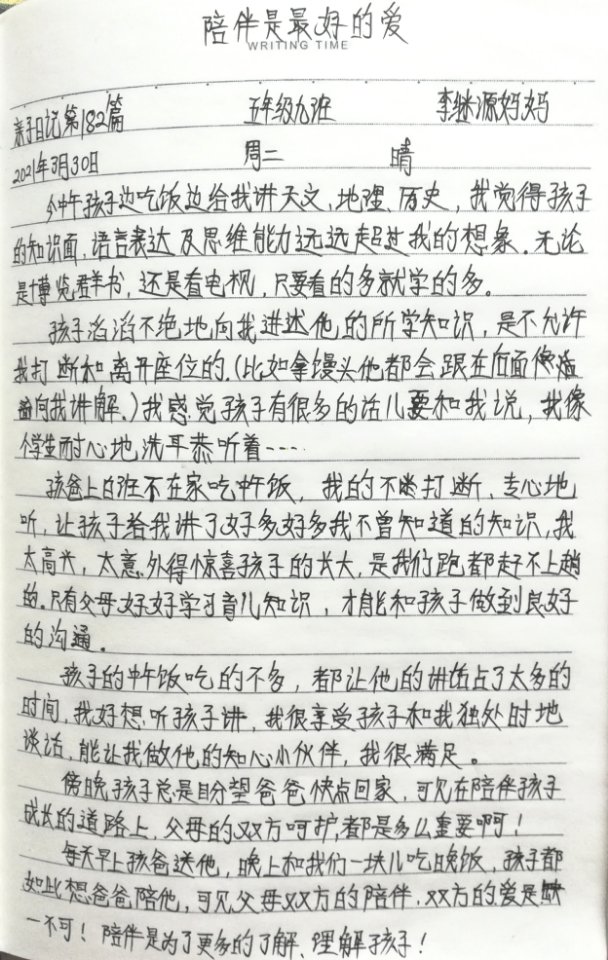 陪伴是最好的爱
WRITING TIME
亲子日记第182篇 五年级九班 李继源妈妈
2021年3月30日 周二 晴
今中午孩子边吃饭边给我讲天文、地理、历史，我觉得孩子
的知识面，语言表达及思维能力远远超过我的想象。无论
是博览群书，还是看电视，只要看的多就学的多。
孩子滔滔不绝地向我讲述他的所学知识，是不允许
我打断和离开座位的。（比如拿馒头他都会跟在后面
向我讲解。）我感觉孩子有很多的话儿要和我说，我像
个学生耐心地洗耳恭听着----
孩爸上白班不在家吃中午饭，我的不打断、专心地
听，让孩子给我讲了好多好多我不曾知道的知识，我
太高兴，太意外得惊喜孩子的长大，是我们跑都赶不上趟
的。只有父母好好学习育儿知识，才能和孩子做到良好
的沟通。
孩子的中午饭吃的不多，都让他的讲话占了太多的
时间，我好想听孩子讲，我很享受孩子和我独处时地
谈话，能让我做他的知心小伙伴，我很满足。
傍晚孩子总是盼望爸爸快点回家，可见在陪伴孩子
成长的道路上，父母的双方呵护，都是多么重要啊！
每天早上孩爸送他，晚上和我们一块儿吃晚饭，孩子都
如此想爸爸陪他，可见父母双方的陪伴，双方的爱是缺
一不可！陪伴是为了更多的了解、理解孩子！